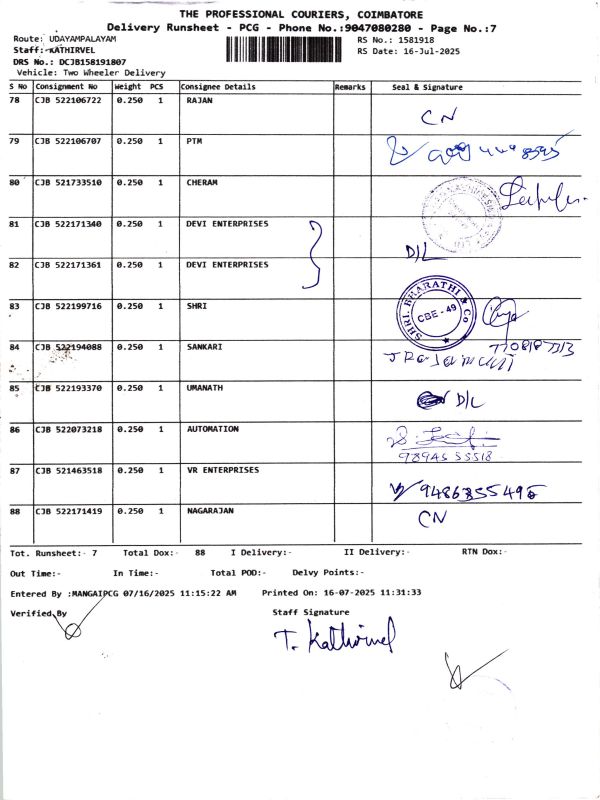 THE PROFESSIONAL COURIERS, COIMBATORE
Delivery Runsheet - PCG - Phone No.:9047080280 - Page No.:7
Route: UDAYAMPALAYAM RS No.: 1581918
Staff:-KATHIRVEL RS Date: 16-Jul-2025
DRS No.: DCJB158191807
Vehicle: Two Wheeler Delivery
S No Consignment No Weight PCS Consignee Details Remarks Seal & Signature
78 CJB 522106722 0.250 1 RAJAN CN
79 CJB 522106707 0.250 1 PTM
80 CJB 521733510 0.250 1 CHERAM
81 CJB 522171340 0.250 1 DEVI ENTERPRISES D/L
82 CJB 522171361 0.250 1 DEVI ENTERPRISES
83 CJB 522199716 0.250 1 SHRI SHRI. BHARATHI & Co CBE - 49
84 CJB 522194088 0.250 1 SANKARI
85 CJB 522193370 0.250 1 UMANATH D/L
86 CJB 522073218 0.250 1 AUTOMATION
9894555518
87 CJB 521463518 0.250 1 VR ENTERPRISES
88 CJB 522171419 0.250 1 NAGARAJAN CN
Tot. Runsheet:- 7 Total Dox:- 88 I Delivery:- II Delivery:- RTN Dox:-
Out Time:- In Time:- Total POD:- Delvy Points:-
Entered By :MANGAIPCG 07/16/2025 11:15:22 AM Printed On: 16-07-2025 11:31:33
Verified By Staff Signature
T. Kathirvel